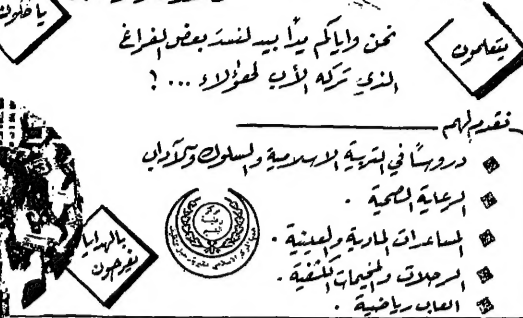 يتعلمون
نحن وإياكم يداً بيد لنسدّ بعض الفراغ
الذي تركه الأب لهؤلاء ... ؟
فنقدم لهم
دروساً في التربية الإسلامية والسلوك والآداب
الرعاية الصحية .
المساعدات المادية والعينية .
الرحلات والمخيمات الكشفية .
العاب رياضية .
بالهدايا
يفرحون